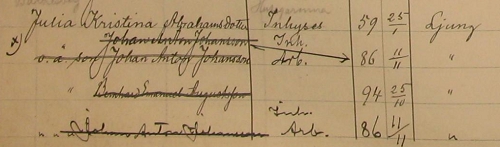 Julia Kristina Abrahamsdotter Inhyses 59 25/1 Ljung
Johan Anton Johansson Inh.
x) o. ä. son Johan Anton Johansson Arb. 86 11/11 "
" Bernhard Emanuel Augustsson 94 25/10 "
Inh.
" " Johan Anton Johansson Arb. 86 11/11 "